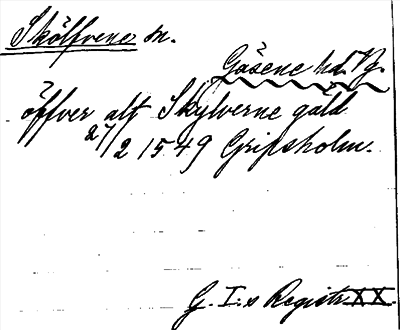 Skölfvene sn.
Gäsene hd. Vg.
öffver alt Skylverne gäld
27/2 1549 Gripsholm.
G. I:s Registr. XX.